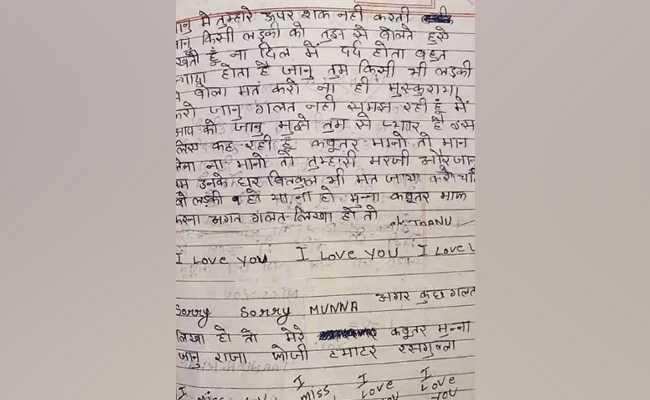 मै तुम्हारे ऊपर शक नही करती
जानु किसी लड़की को तुझ से बोलते हुऐ
हूँ ना दिल में दर्द होता बहुत
होता है जानु तुम किसी भी लड़की
बोला मत करो ना ही मुस्कुराया
करो जानु गलत नही समझ रही हूँ मैं
आप को जानु मुझे तुम से प्यार है इस
लिए कह रही हूँ कबूतर मानो तो मान
लेना ना मानो तो तुम्हारी मरजी और जानु
उनके घर बिलकुल भी मत जाया करो
वो लड़की हो या ना हो मुन्ना कबूतर माफ
करना अगर गलत लिखा हो तो
I LOVE YOU I LOVE YOU I LOVE
Sorry Sorry MUNNA अगर कुछ गलत
लिखा हो तो मेरे कबूतर मुन्ना
जानु राजा टमाटर रसगुल्ला
I I I
miss LOVE LOVE
YOU